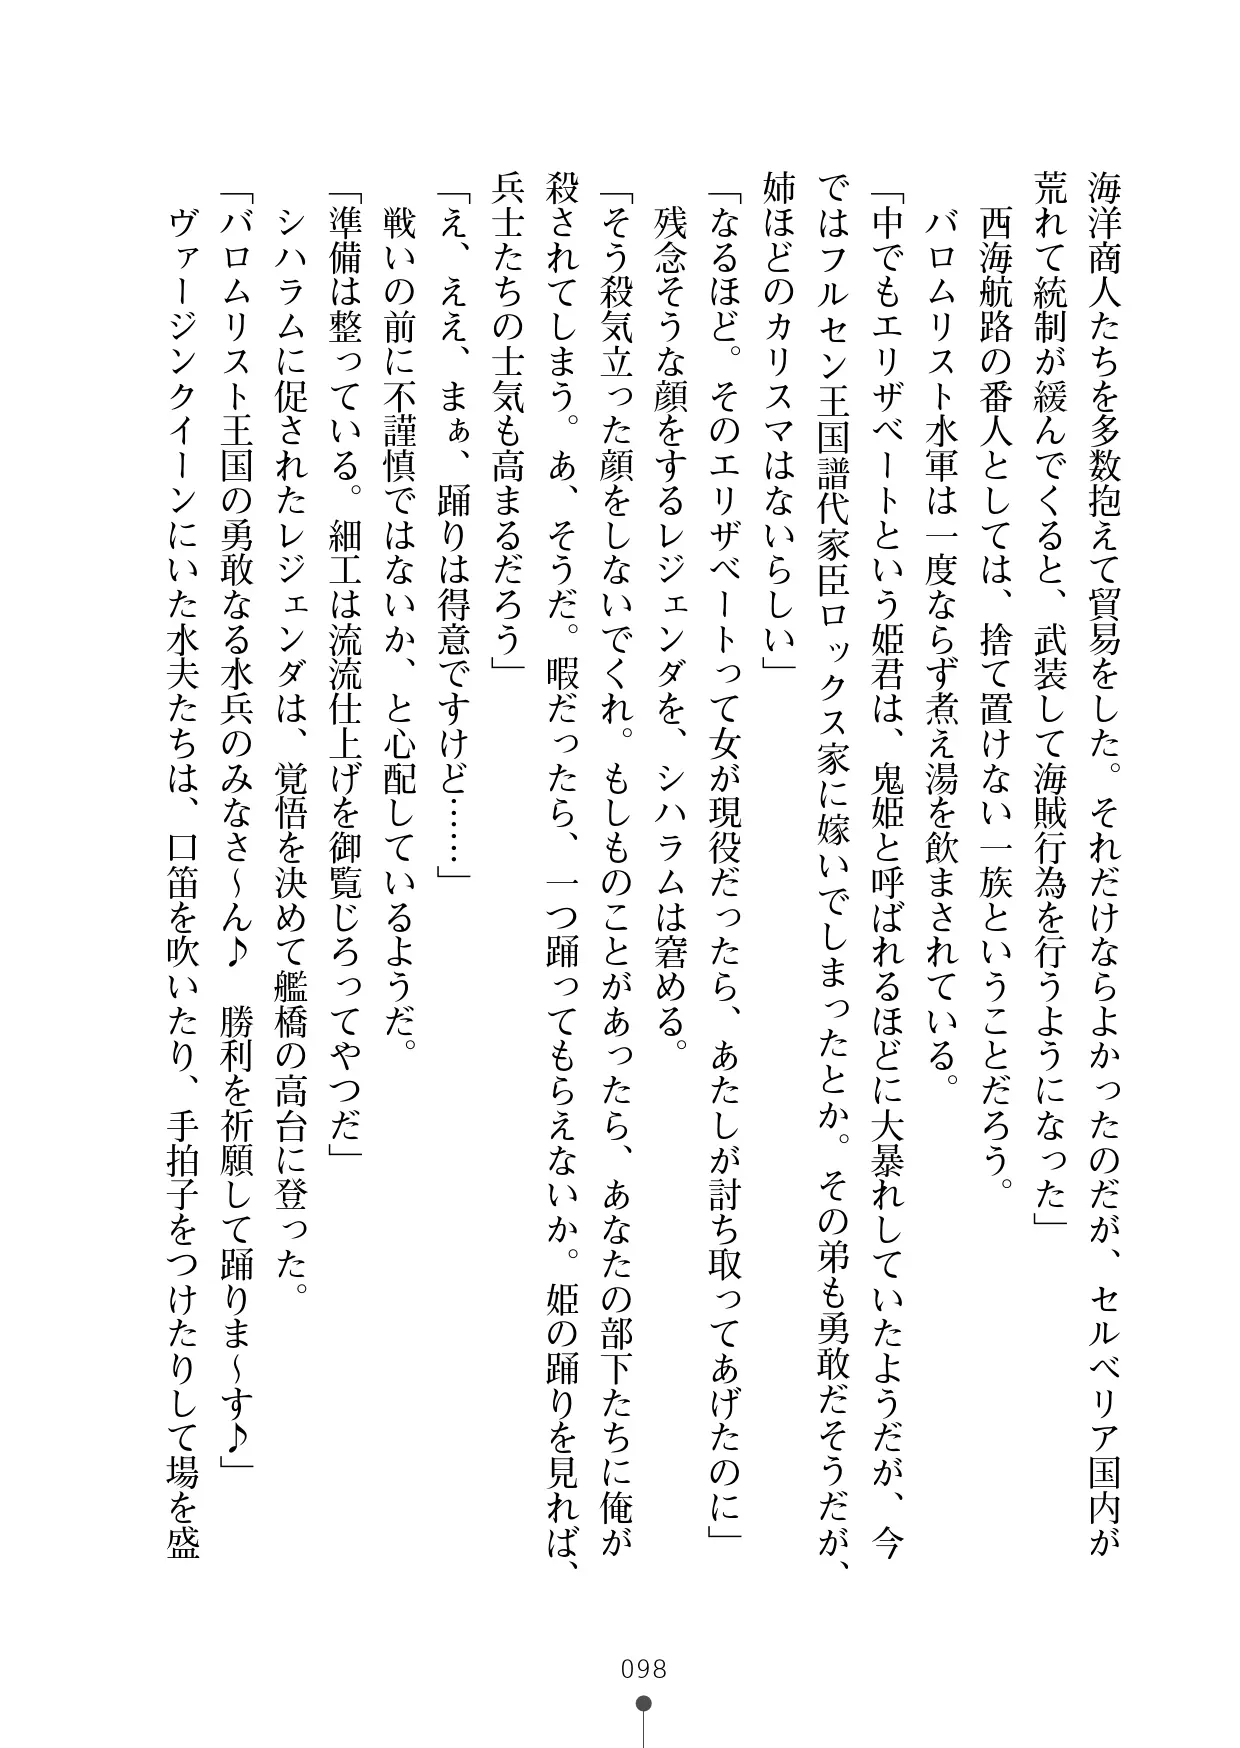 海洋商人たちを多数抱えて貿易をした。それだけならよかったのだが、セルベリア国内が
荒れて統制が緩んでくると、武装して海賊行為を行うようになった」
　西海航路の番人としては、捨て置けない一族ということだろう。
　バロムリスト水軍は一度ならず煮え湯を飲まされている。
「中でもエリザベートという姫君は、鬼姫と呼ばれるほどに大暴れしていたようだが、今
ではフルセン王国譜代家臣ロックス家に嫁いでしまったとか。その弟も勇敢だそうだが、
姉ほどのカリスマはないらしい」
「なるほど。そのエリザベートって女が現役だったら、あたしが討ち取ってあげたのに」
　残念そうな顔をするレジェンダを、シハラムは窘める。
「そう殺気立った顔をしないでくれ。もしものことがあったら、あなたの部下たちに俺が
殺されてしまう。あ、そうだ。暇だったら、一つ踊ってもらえないか。姫の踊りを見れば、
兵士たちの士気も高まるだろう」
「え、ええ、まぁ、踊りは得意ですけど……」
　戦いの前に不謹慎ではないか、と心配しているようだ。
「準備は整っている。細工は流流仕上げを御覧じろってやつだ」
　シハラムに促されたレジェンダは、覚悟を決めて艦橋の高台に登った。
「バロムリスト王国の勇敢なる水兵のみなさ～ん♪　勝利を祈願して踊りま～す♪」
　ヴァージンクイーンにいた水夫たちは、口笛を吹いたり、手拍子をつけたりして場を盛
098